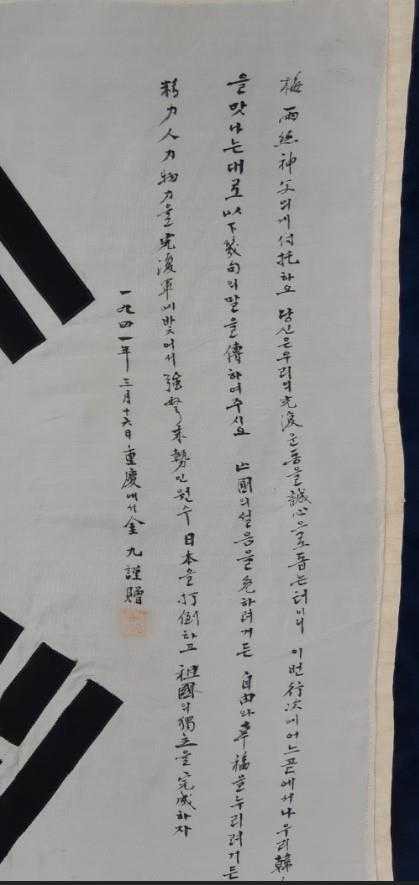 梅雨絲神父의게付托하오 당신은우리의光復운동을誠心으로돕는터이니 이번行次에어느곧에서나우리韓
을맛나는대로以下幾句의말을傳하여주시오 亡國의설음을免하려거든 自由와幸福을누리려거든
精力人力物力을光復軍에밫어서强弩末勢인원수日本을打倒하고 祖國의獨立을完成하자
一九四一年三月十六日重慶에서金九謹贈